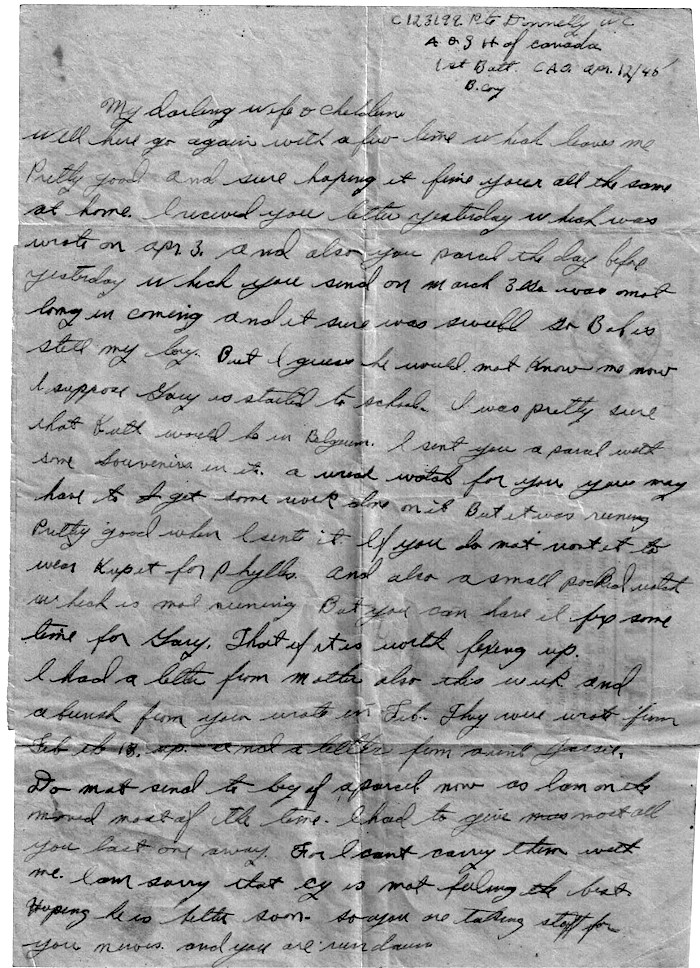 C123198 Pte Donnelly W C
A & S H of Canada
1st Batt. C.A.O. Apr. 12/45
B. Coy
My darling wife & Children
Well here go again with a few line which leaves me
Pretty good and sure hoping it fine your all the same
at home. I recived you letter yesterday which was
wrote on Apr. 3. and also you parcel the day before
yesterday which you send on March 3 was mot
long in coming and it sure was swell So Bob is
still my boy. But I guess he would mot Know me now
I suppose Gary is started to school. I was pretty sure
that would be in Belgium. I sent you a parcel with
some Souvenirs in it. a watch for you you may
have to get some work done on it But it was runing
Pretty good when I sent it If you do mot wont it to
wear Kepit for Phyllis. and also a small pocked watch
which is mot runing But you can have it fix some
time for Gary. That if it is worth fixing up.
I had a letter from mother also this week and
a bunsh from you wrote in Feb. They were wrote from
Feb 13. up. and a letter from aunt
Do mot send to big of a parcel now as I am on the
moved most of the time. I had to give most all
you last one away. For I cant carry them with
me. I am sorry that Cy is mot feeling the best
Hoping he is better soon. so you are taking stoff for
you nerves. and you are run down